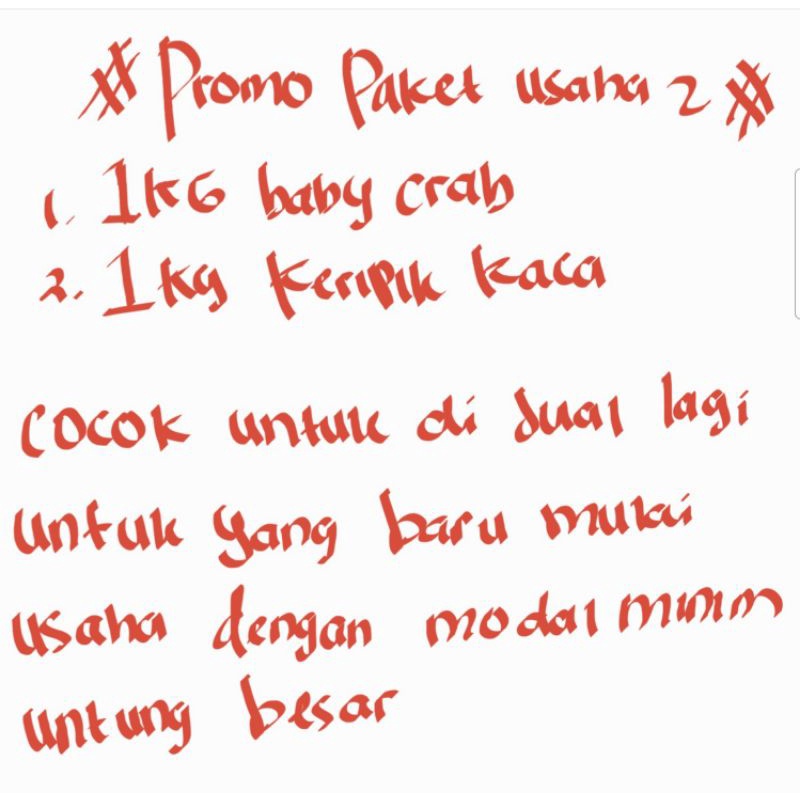 # Promo Paket usaha 2 #
1. 1kG baby crab
2. 1kg keripik kaca
cocok untuk di Jual lagi
untuk yang baru mulai
usaha dengan modal minim
untung besar